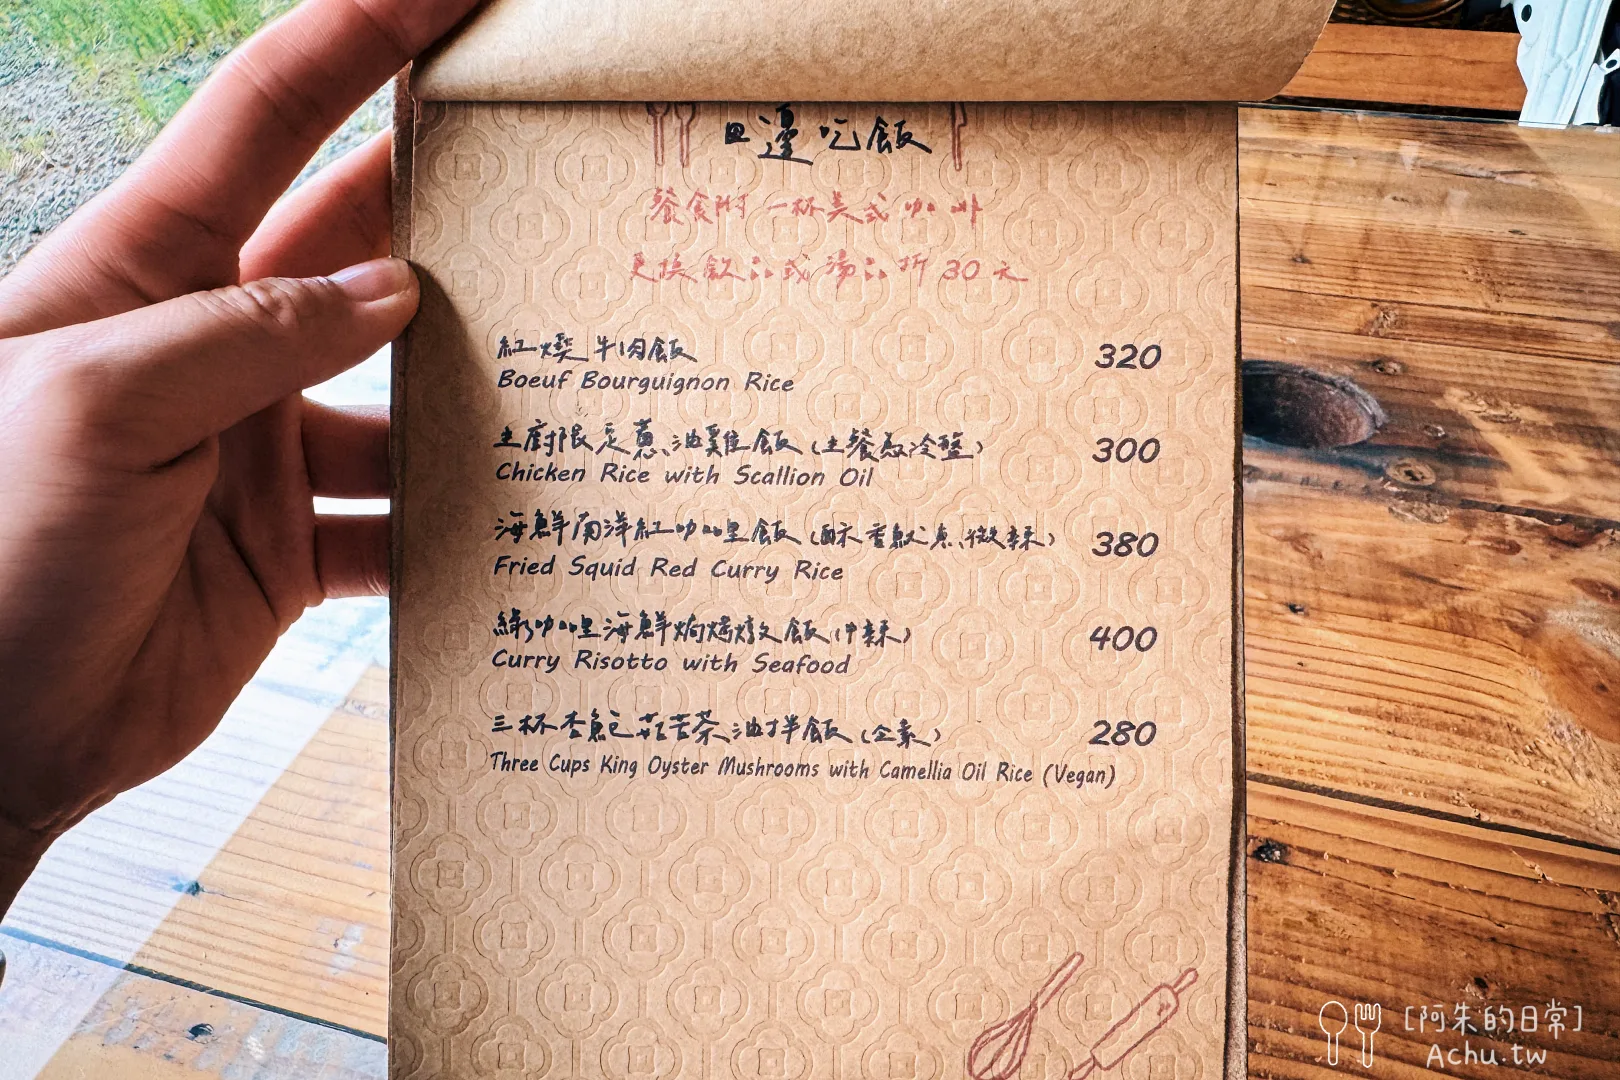 田邊吃飯
餐食附一杯美式咖啡
更換飲品或湯品折30元
紅燒牛肉飯 320
Boeuf Bourguignon Rice
主廚限定蔥油雞飯(主餐為冷盤) 300
Chicken Rice with Scallion Oil
海鮮南洋紅咖哩飯(酥香魷魚、微辣) 380
Fried Squid Red Curry Rice
綠咖哩海鮮焗烤燉飯(中辣) 400
Curry Risotto with Seafood
三杯杏鮑菇苦茶油拌飯(全素) 280
Three Cups King Oyster Mushrooms with Camellia Oil Rice (Vegan)
[阿朱的日常]
Achu.tw